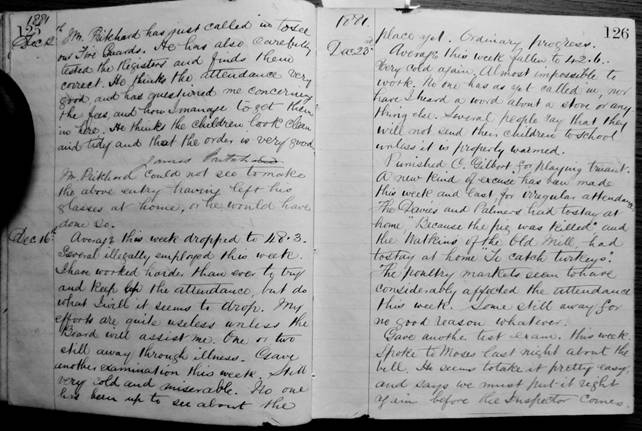 1881
125
Dec 12th J M. Pritchard has just called in to see
our Fire Guards. He has also carefully
tested the Registers and finds them
correct. He thinks the attendance very
good, and has questioned me concerning
the fees, and how I manage to get them
in here. He thinks the children look clean
and tidy and that the order is very good
James
J M. Pritchard could not see to make
the above entry having left his
glasses at home, or he would have
done so.
Dec 16th Average this week dropped to 48.3.
Several illegally employed this week.
I have worked harder than ever to try
and keep up the attendance, but do
what I will it seems to drop. My
efforts are quite useless unless the
Board will assist me. One or two
still away through illness. Gave
another examination this week. Still
very cold and miserable. No one
has been up to see about the
1881.
126
place yet. Ordinary progress.
Dec 23rd Average this week fallen to 42.6.
Very cold again. Almost impossible to
work. No one has as yet called in, nor
have I heard a word about a stove or any
thing else. Several people say that they
will not send their children to School
unless it is properly warmed.
Punished C. Gilbert for playing truant.
A new kind of excuse has been made
this week and last, for irregular attendance
The Davies and Palmers had to stay at
home "Because the pig was killed" and
the Watkins of the Old Mill, had
to stay at home To catch turkeys.
The poultry markets seem to have
considerably affected the attendance
this week. Some still away for
no good reason whatever.
Gave another test Exam. this week.
Spoke to Moses last night about the
bell. He seems to take it pretty easy
and says we must put it right
again before the Inspector comes.